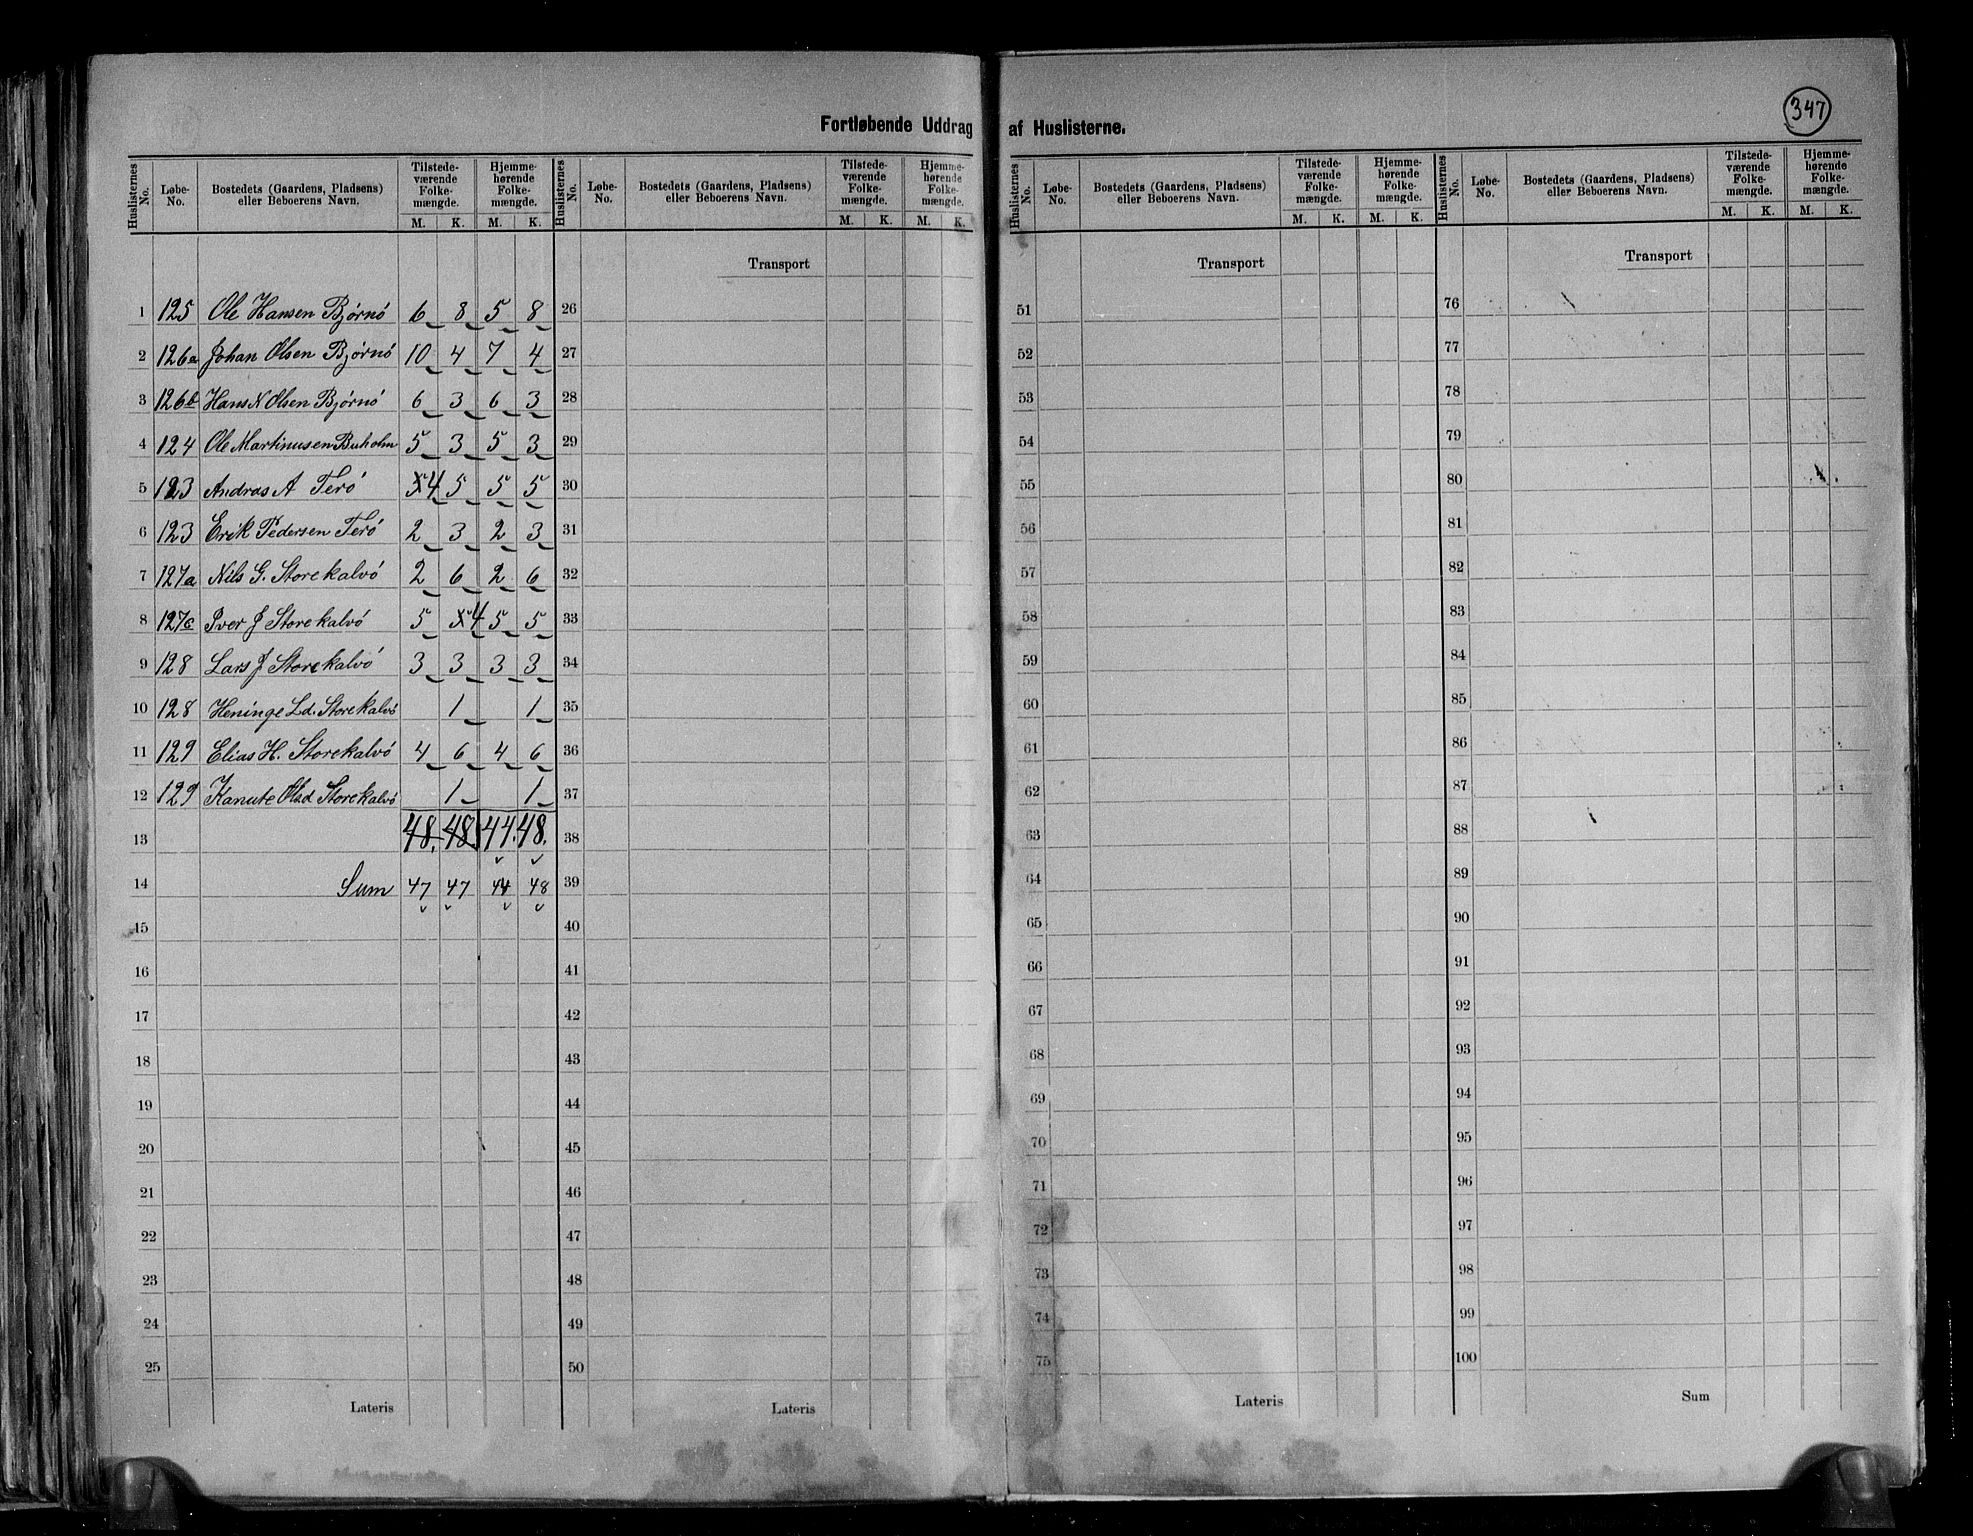 347
Fortløbende Uddrag af Huslisterne.
Huslisternes No. Løbe-No. Bostedets (Gaardens, Pladsens) eller Beboerens Navn. Tilstedeværende Folkemængde. M. K. Hjemmehørende Folkemængde. M. K.
Huslisternes No. Løbe-No. Bostedets (Gaardens, Pladsens) eller Beboerens Navn. Tilstedeværende Folkemængde. M. K. Hjemmehørende Folkemængde. M. K.
Huslisternes No. Løbe-No. Bostedets (Gaardens, Pladsens) eller Beboerens Navn. Tilstedeværende Folkemængde. M. K. Hjemmehørende Folkemængde. M. K.
Huslisternes No. Løbe-No. Bostedets (Gaardens, Pladsens) eller Beboerens Navn. Tilstedeværende Folkemængde. M. K. Hjemmehørende Folkemængde. M. K.
Transport Transport Transport
1 125 Ole Hansen Bjørnö 6 8 5 8 26 51 76
2 126a Johan Olsen Bjørnö 10 4 7 4 27 52 77
3 126b Hans N Olsen Bjørnö 6 3 6 3 28 53 78
4 124 Ole Martinusen Buholm 5 3 5 3 29 54 79
5 123 Andras A Terö 5 4 5 5 5 30 55 80
6 123 Erik Pedersen Terö 2 3 2 3 31 56 81
7 127a Nils G. Storekalvö 2 6 2 6 32 57 82
8 127c Iver J Storekalvö 5 5 4 5 5 33 58 83
9 128 Lars J Storekalvö 3 3 3 3 34 59 84
10 128 Heninge Ld. Storekalvö 1 1 35 60 85
11 129 Elias H. Storekalvö 4 6 4 6 36 61 86
12 129 Kanute Olsd Storekalvö 1 1 37 62 87
13 48. 48 44. 48. 38 63 88
14 Sum 47 47 44 48 39 64 89
15 40 65 90
16 41 66 91
17 42 67 92
18 43 68 93
19 44 69 94
20 45 70 95
21 46 71 96
22 47 72 97
23 48 73 98
24 49 74 99
25 50 75 100
Lateris Lateris Lateris Sum